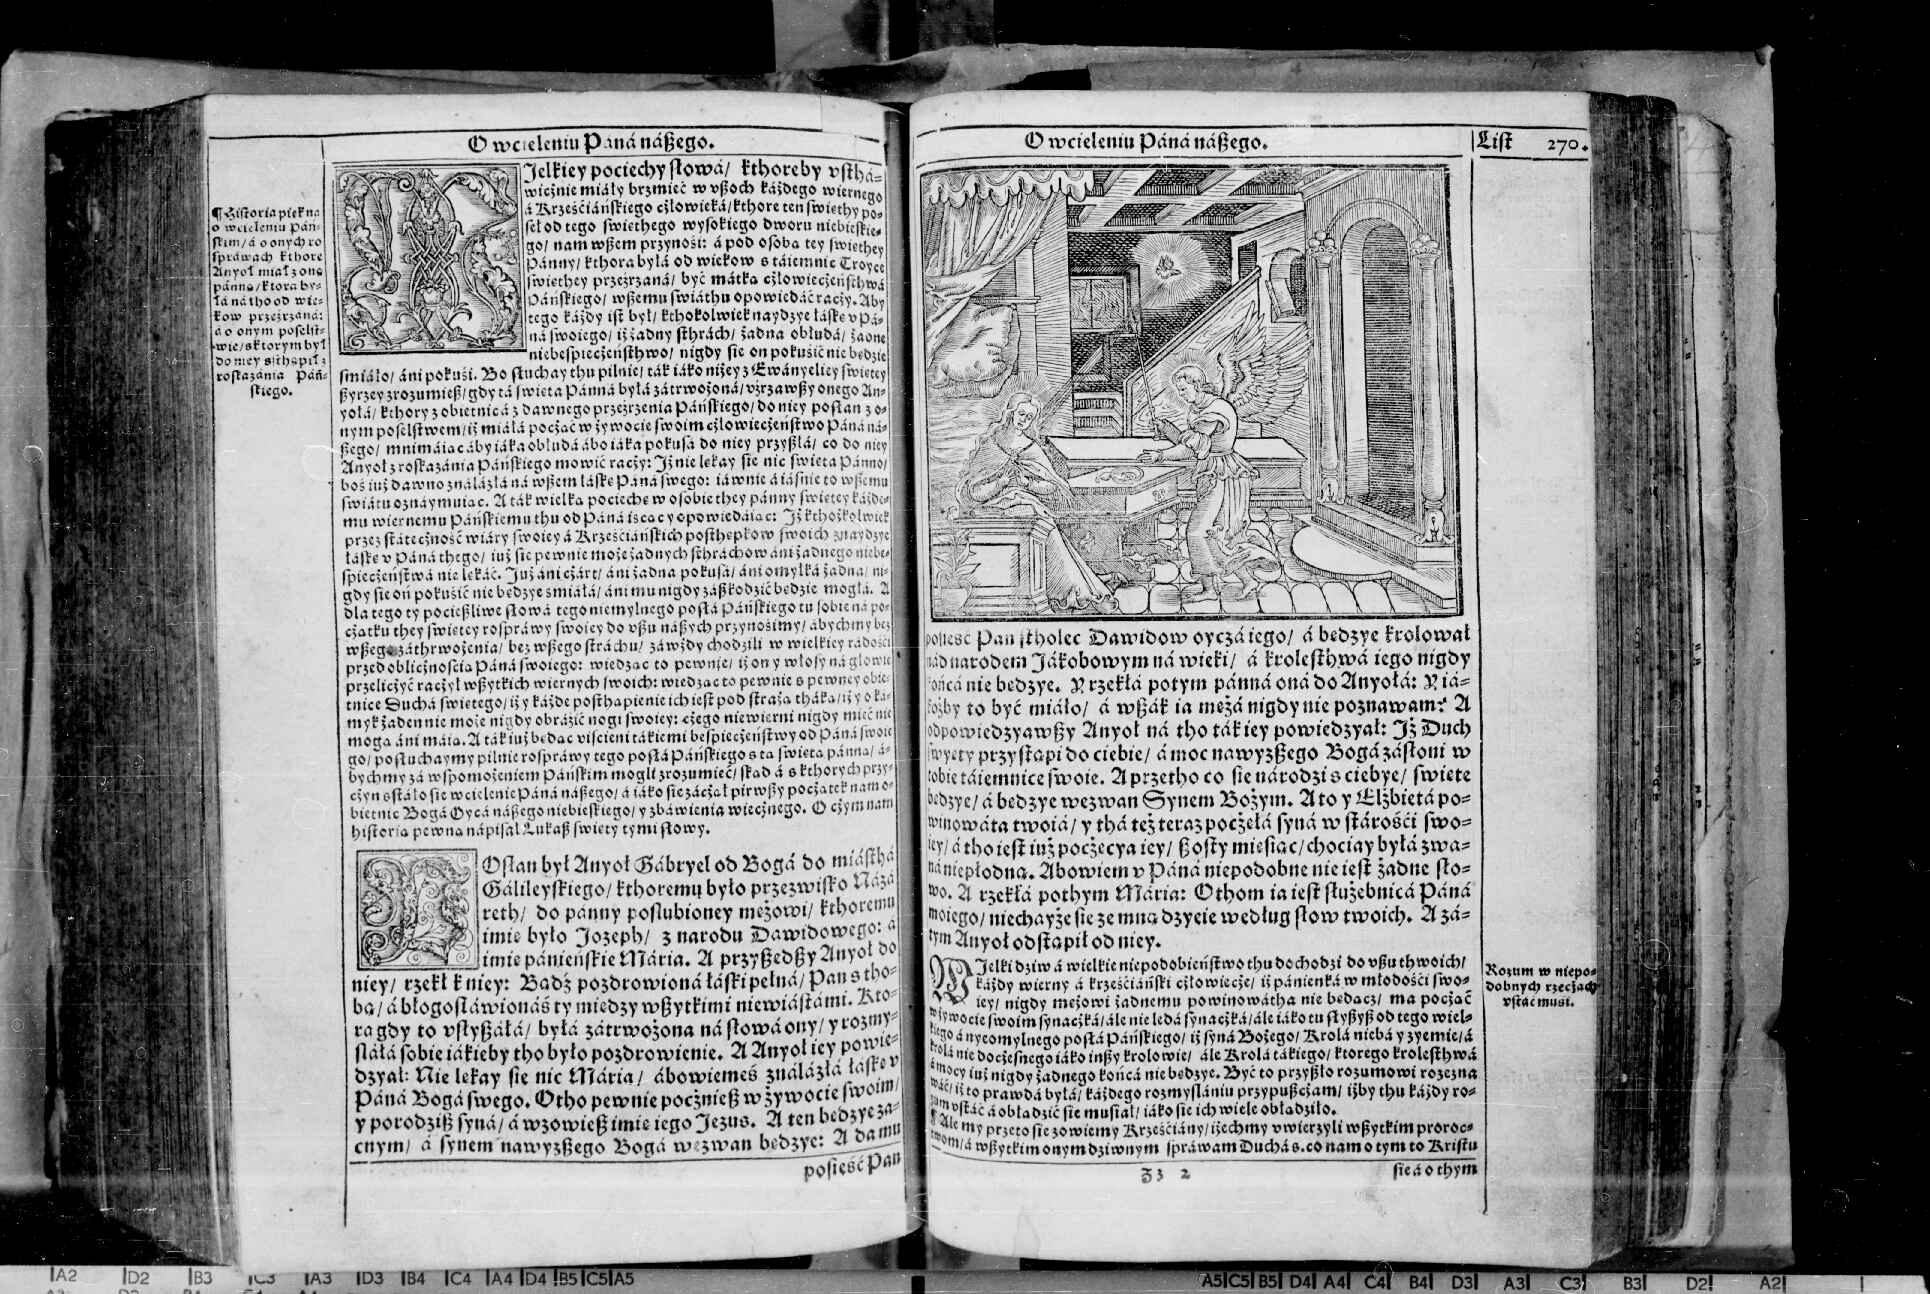 O wcieleniu Páná náßego.
¶ Historia piekna
o wcieleniu Pań-
skim/ á o onych ro
spráwach kthore
Anyoł miał z oną
pánną/ ktora by-
łá ná tho od wie-
kow przeźrzána:
á o onym poselst-
wie/ s ktorym był
do niey sithąpił z
roskazánia Pań-
skiego.
WIelkiey pociechy słowá/ kthoreby vsthá-
wicżnie miáły brzmieć w vßoch káżdego wiernego
á Krześćiáńskiego cżłowieká/ kthore ten swiethy po-
seł od tego swiethego wysokiego dworu niebieskie-
go/ nam wßem przynośi: á pod osobą tey swiethey
Pánny/ kthora byłá od wiekow s táiemnic Troyce
swiethey przeźrzána/ być mátką cżłowiecżeństhwá
Páńskiego/ wßemu swiáthu opowiedáć racży. Aby
tego káżdy ist był/ kthokolwiek naydzye łáskę v Pá-
ná swoiego/ iż żadny sthrách/ żadna obłudá/ żadne
niebespiecżeństhwo/ nigdy sie oń pokusić nie będzie
smiáło/ áni pokuśi. Bo słuchay thu pilnie/ ták iáko niżey z Ewányeliey swiętey
ßyrzey zrozumieß/ gdy tá swięta Pánná byłá zátrwożoná/ vźrzawßy onego An-
yołá/ kthory z obietnic á z dawnego przeźrzenia Páńskiego/ do niey posłan z o-
nym poselstwem/ iż miáłá pocżąć w żywocie swoim cżłowiecżeństwo Páná ná-
ßego/ mnimáiąc áby iáka obłudá ábo iáka pokusá do niey przyßłá/ co do niey
Anyoł z roskazánia Páńskiego mowić racży: Iż nie lękay sie nic swięta Pánno/
boś iuż dawno ználázłá ná wßem łáskę Páná swego: iáwnie á iáśnie to wßemu
swiátu oznaymuiąc. A ták wielką pociechę w osobie they pánny swiętey káżde-
mu wiernemu Páńskiemu thu od Páná iścąc y opowiedáiąc: Iż kthożkolwiek
przez státecżność wiáry swoiey á Krześćiáńskich posthępkow swoich znaydzye
łáskę v Páná thego/ iuż sie pewnie może żadnych sthráchow áni żadnego niebe-
spiecżeństwá nie lękáć. Iuż áni cżárt/ áni żadna pokusá/ áni omyłká żadna/ ni-
gdy sie oń pokusić nie będzye smiáłá/ áni mu nigdy záßkodzić będzie mogłá. A
dla tego ty pocießliwe słowá tego niemylnego posłá Páńskiego tu sobie ná po-
cżątku they swiętey rospráwy swoiey do vßu náßych przynośimy/ ábychmy bez
wßego záthrwożenia/ bez wßego stráchu/ záwżdy chodzili w wielkiey rádości
przed oblicżnością Páná swoiego: wiedząc to pewnie/ iż on y włosy ná głowie
przelicżyć racżył wßytkich wiernych swoich: wiedząc to pewnie s pewney obie-
tnice Duchá swiętego/ iż y káżde posthąpienie ich iest pod strażą tháką/ iż y o ká-
myk żaden nie może nigdy obráźić nogi swoiey: cżego niewierni nigdy mieć nie
mogą áni máią. A ták iuż będąc vścieni tákiemi bespiecżeństwy od Páná swoie
go/ posłuchaymy pilnie rospráwy tego posłá Páńskiego s tą swiętą pánną/ á-
bychmy zá wspomożeniem Páńskim mogli zrozumieć/ skąd á s kthorych przy-
cżyn sstáło sie wcielenie Páná náßego/ á iáko sie zácżął pirwßy pocżątek nam o-
bietnic Bogá Oycá náßego niebieskiego/ y zbáwienia wiecżnego. O cżym nam
historia pewna nápisał Lukaß swięty tymi słowy.
POsłan był Anyoł Gábryel od Bogá do miásthá
Gálileyskiego/ kthoremu było przezwisko Názá
reth/ do pánny poslubioney mężowi/ kthoremu
imię było Jozeph/ z narodu Dawidowego: á
imię pánieńskie Mária. A przyßedßy Anyoł do
niey/ rzekł k niey: Bądź pozdrowiona łáski pełna/ Pan s tho-
bą/ á błogosłáwionáś ty miedzy wßytkimi niewiástámi. Kto-
ra gdy to vsłyßáłá/ byłá zátrwożona ná słowá ony/ y rozmy-
sláłá sobie iákieby tho było pozdrowienie. A Anyoł iey powie-
dzyał: Nie lękay się nic Mária/ ábowiemeś ználázłá łáskę v
Páná Bogá swego. Otho pewnie pocżnieß w żywocie swoim/
y porodziß syná/ á wzowieß imię iego Jezus. A ten będzye zá-
cnym/ á synem nawyzßego Bogá wezwan będzye: A da mu
posięść Pan
O wcieleniu Páná náßego.
List 270.
posięść Pan stholec Dawidow oyczá iego/ á będzye krolował
nád narodem Jákobowym ná wieki/ á krolesthwá iego nigdy
końcá nie będzye. Y rzekłá potym pánná oná do Anyołá: Y iá-
kożby to być miáło/ á wßák ia mężá nigdy nie poznawam? A
odpowiedzyawßy Anyoł ná tho ták iey powiedzyał: Iż Duch
swyęty przystąpi do ciebie/ á moc nawyzßego Bogá zásłoni w
tobie táiemnice swoie. A przetho co się národzi s ciebye/ swięte
będzye/ á będzye wezwan Synem Bożym. A to y Elżbietá po-
winowáta twoiá/ y thá też teraz pocżęłá syná w stárości swo-
iey/ á tho iest iuż pocżęcya iey/ ßosty miesiąc/ chociay byłá zwa-
ná niepłodną. Abowiem v Páná niepodobne nie iest żadne sło-
wo. A rzekłá pothym Mária: Othom ia iest służebnicá Páná
moiego/ niechayże się ze mną dzyeie według słow twoich. A zá-
tym Anyoł odstąpił od niey.
WIelki dziw á wielkie niepodobieństwo thu dochodzi do vßu thwoich/
káżdy wierny á krześćiáński cżłowiecże/ iż pánienká w młodości swo-
iey/ nigdy mężowi żadnemu powinowátha nie będąc/ ma pocżąć
w żywocie swoim synacżká/ ále nie ledá synacżká/ ále iáko tu słyßyß od tego wiel-
kiego á nyeomylnego posłá Páńskiego/ iż syná Bożego/ Krolá niebá y zyemie/ á
krolá nie docżesnego iáko inßy krolowie/ ále Krolá tákiego/ ktorego krolesthwá
á mocy iuż nigdy żadnego końcá nie będzye. Być to przyßło rozumowi rozezná
wáć/ iż to prawdá byłá/ káżdego rozmyslániu przypußcżam/ iżby thu káżdy ro-
zum vstáć á obłądzić sie musiał/ iáko sie ich wiele obłądziło.
¶ Ale my przeto sie zowiemy Krześćiány/ iżechmy vwierzyli wßytkim proroc-
twom/ á wßytkim onym dziwnym spráwam Duchá s. co nam o tym to Kristu
Rozum w niepo-
dobnych rzecżách
vstáć musi.
Zz 2
sie á o thym
A2 D2 B3 C3 A3 D3 B4 C4 A4 D4 B5 C5 A5
A5 C5 B5 D4 A4 C4 B4 D3 A3 C3 B3 D2 A2